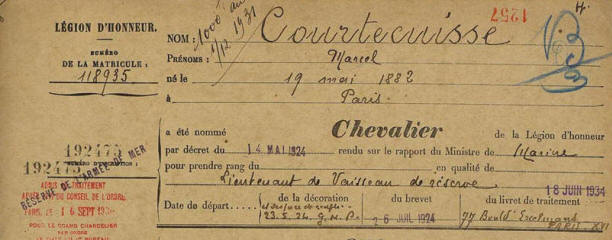 H.
1257
LÉGION D'HONNEUR.
NUMÉRO
DE LA MATRICULE :
118935.
1000
1/12.1931
NOM : Courtecuisse
PRÉNOMS : Marcel
né le 19 mai 1882
à Paris.
192475
192475
NUMÉRO D'INSCRIPTION :
RÉSERVE DE L'ARMÉE DE MER
TRAITEMENT
DU CONSEIL DE L'ORDRE
PARIS, LE 16 SEPT
POUR LE GRAND CHANCELIER
PAR ORDRE
a été nommé Chevalier de la Légion d'honneur
par décret du 14 MAI 1924 rendu sur le rapport du Ministre de Marine
pour prendre rang du en qualité de
Lieutenant de Vaisseau de réserve
18 JUIN 1934
Date de départ de la décoration du brevet du livret de traitement
23.5.24. 26 JUIL 1924 77 Boulд Exelmans
PARIS